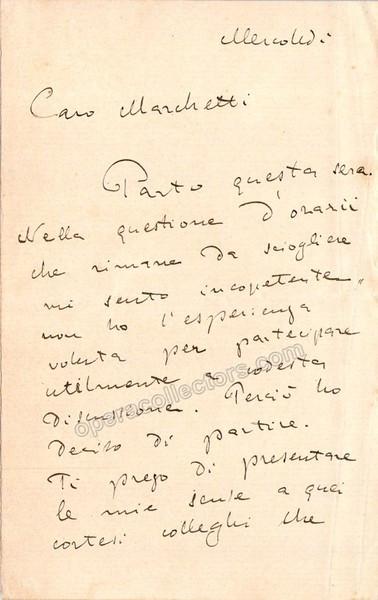 Mercoledì
Caro Marchetti
Parto questa sera.
Nella questione d'orarii
che rimane da sciogliere
mi sento incopetente,
non ho l'esperienza
voluta per partecipare
utilmente a codesta
discussione. Perciò ho
deciso di partire.
Ti prego di presentare
le mie scuse a quei
cortesi colleghi che
operacollectors.com